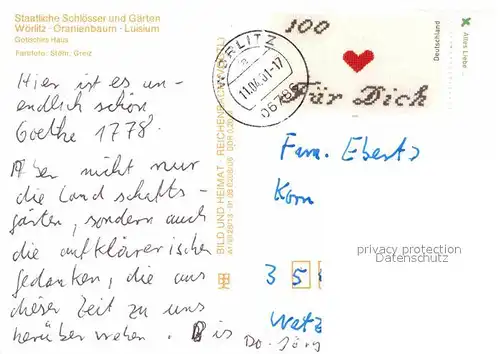 Staatliche Schlösser und Gärten
Wörlitz · Oranienbaum · Luisium
Gotisches Haus
Farbfoto: Stöhr, Greiz
Hier ist es un-
endlich schön
Goethe 1778.
Aber nicht nur
die Landschafts-
gärten, sondern auch
die aufklärerischen
gedanken, die aus
dieser Zeit zu uns
herüber wehen. Bis Do. Jörg
BILD UND HEIMAT REICHENBACH
WÖRLITZ
11.04.01-17
06786
100
Für Dich
Deutschland
Alles Liebe
Fam. Ebert
Korn
privacy protection
Datenschutz
3 5
Wetz